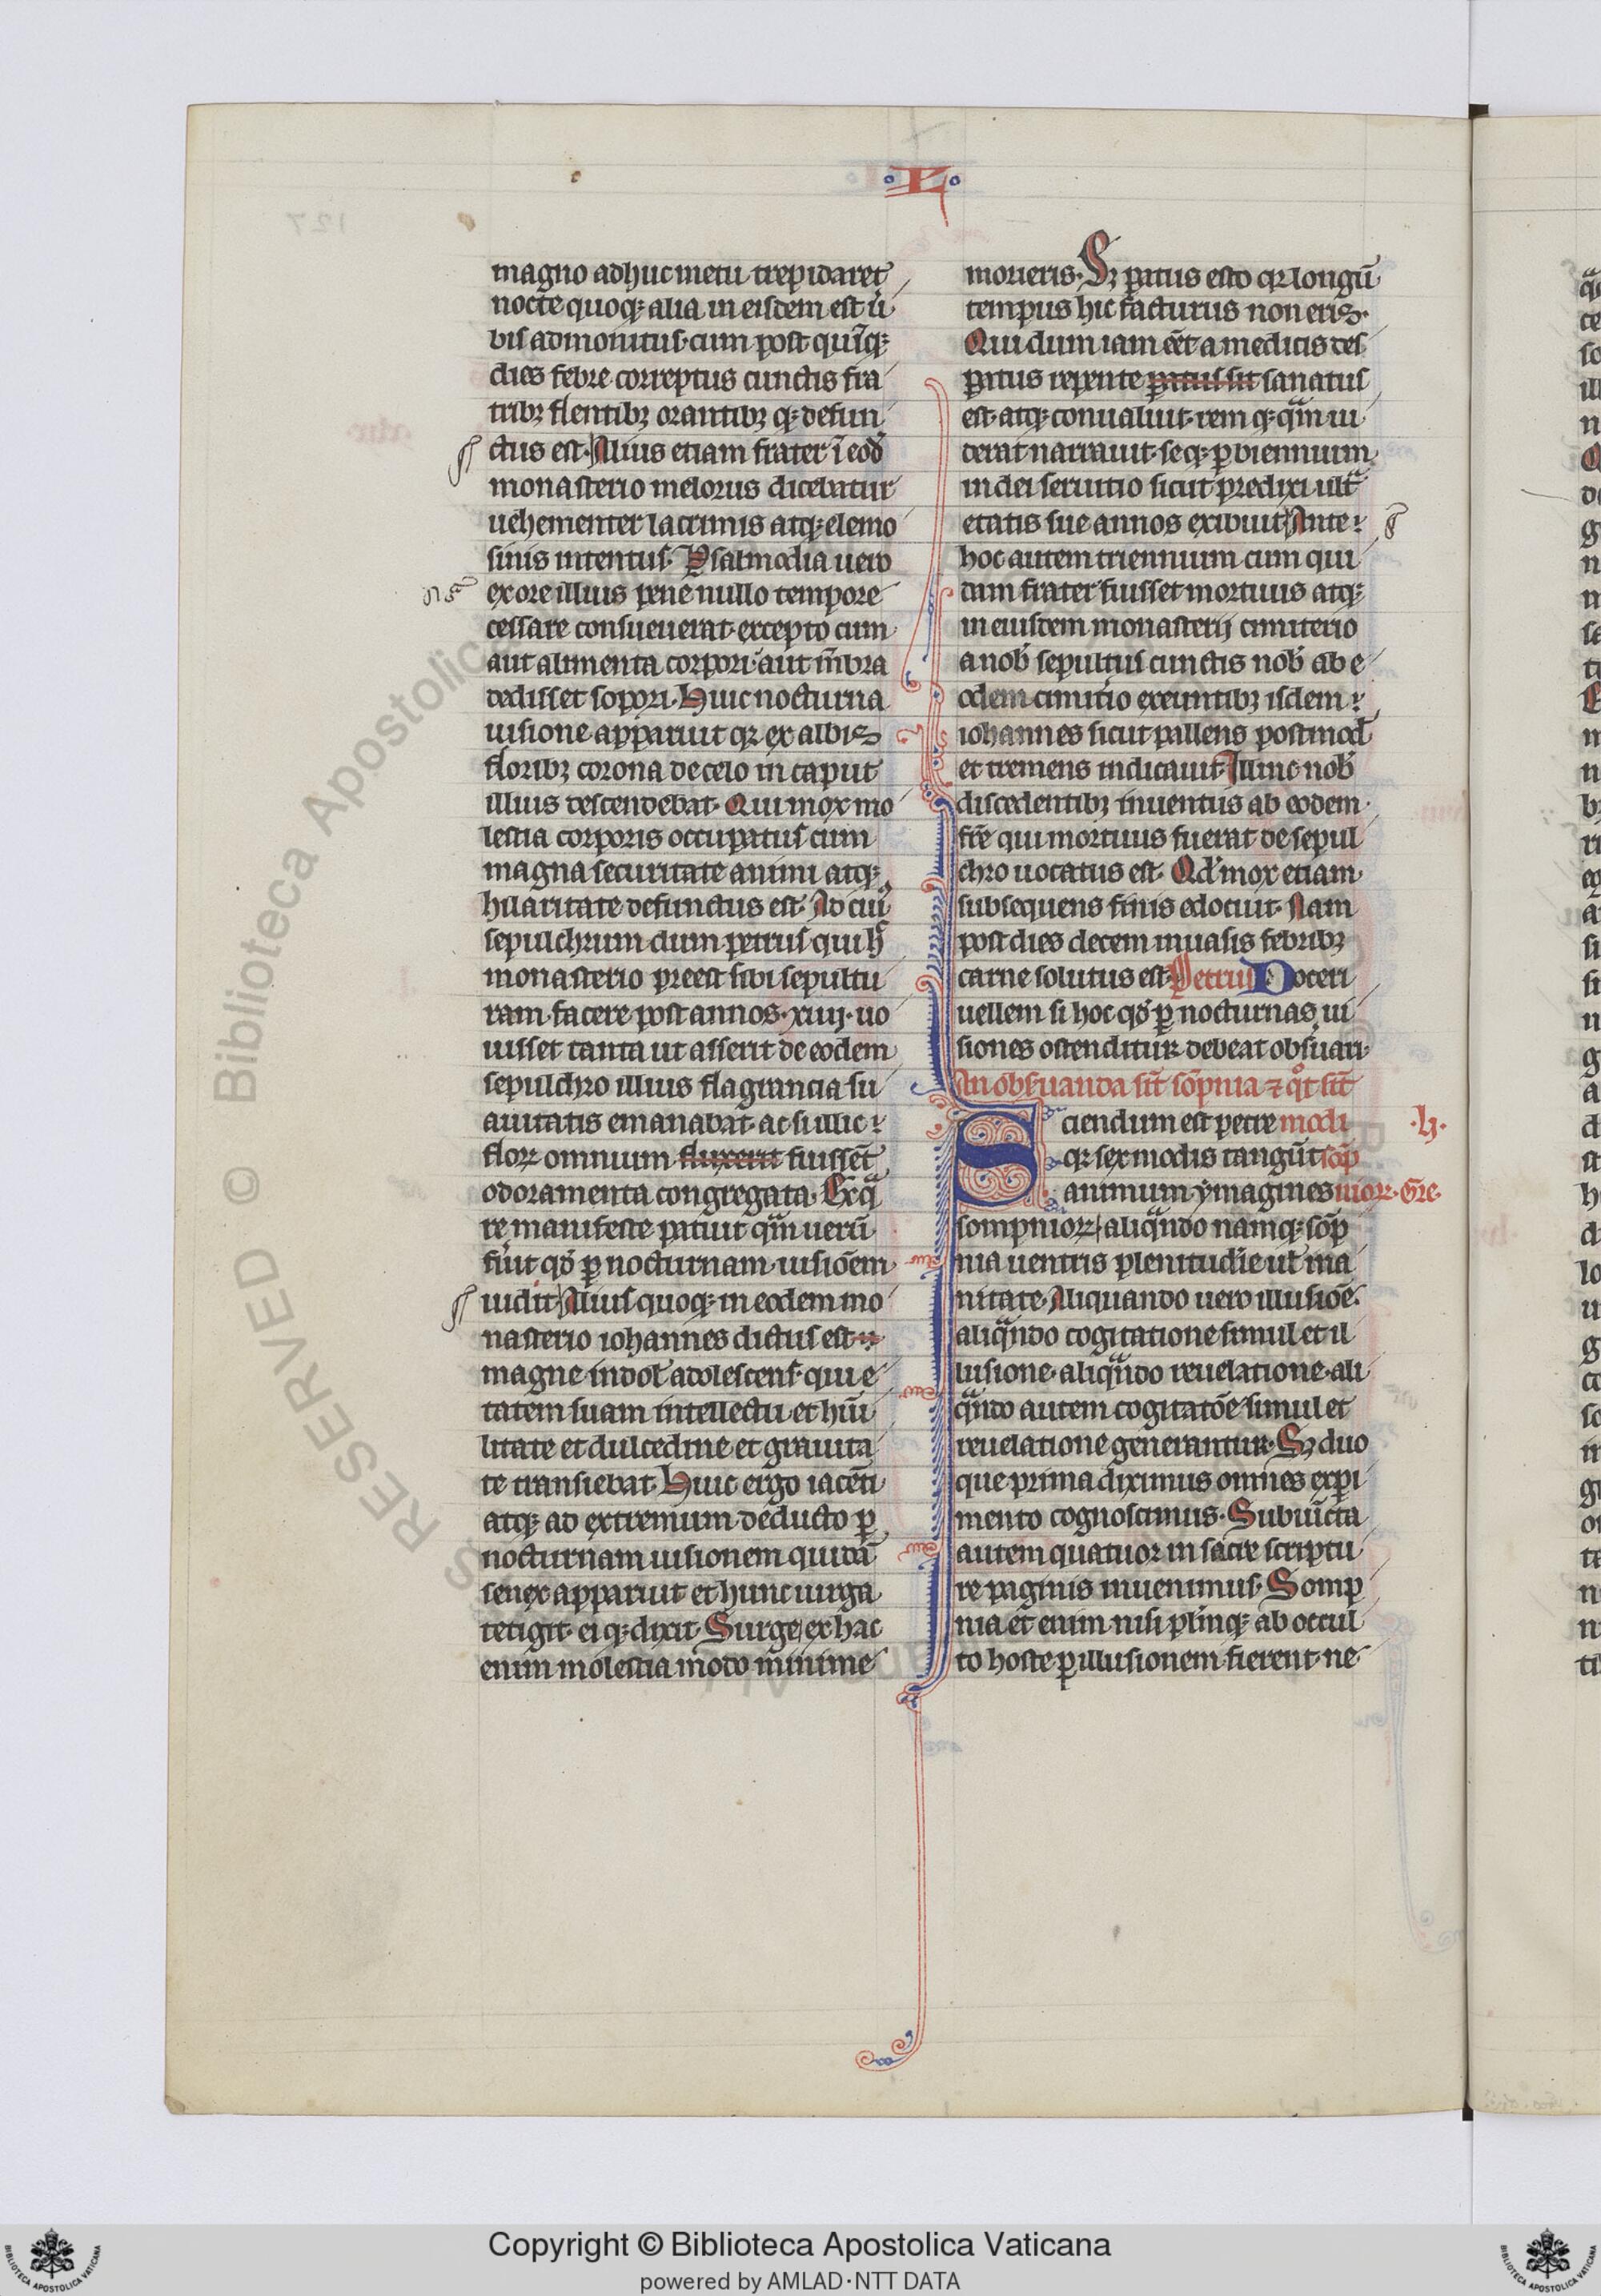 L
magno adhuc metu trepidaret
nocte quoq; alia in eisdem est ũ
bis admonitus. cum post quĩq;
dies febre correptus cunctis fra
tribꝫ flentibꝫ orantibꝫ q; defun
ctus est. Alius etiam frater ĩ eod̃
monasterio melorus dicebatur
uehementer lacrimis atq; elemo
sinis intentus. Psalmodia uero
ex ore illius pene nullo tempore
cessare consueuerat. excepto cum
aut alimenta corpori. aut mẽbra
dedisset sopori. Huic nocturna
uisione apparuit qꝫ ex albis
floribꝫ corona de celo in caput
illius descendebat. Qui mox mo
lestia corporis occupatus cum
magna securitate animi atq;
hilaritate defunctus est. Ad cuiꝰ
sepulchrum dum petrus qui ħ
monasterio preest sibi sepultu
ram facere post annos .xiiij. uo
uisset tanta ut asserit de eodem
sepulchro illius flagrancia su
auitatis emanabat. ac si illic
floꝝ omnium fluxerit fuissẽt
odoramenta congregata. Ex qͣ
re manifeste patuit qͣm uerũ
fuit qđ ꝑ nocturnam uisiõem
uidit. Alius quoq; in eodem mo
nasterio iohannes dictus est
magne indoł adolescens. qui e
tatem suam intellectu et humi
litate et dulcedine et grauita
te transiebat. Huic ergo iacẽti
atq; ad extremum deducto ꝑ
nocturnam uisionem quidã
senex apparuit et hunc uirga
tetigit. ei q; dixit. Surge ex hac
enim molestia modo minime
morieris. Sꝫ ꝑatus esto qꝫ longũ
tempus hic facturus non eris.
Qui dum iam eẽt a medicis des
ꝑatus repente ꝑatus sit sanatus
est. atq; conualuit. rem q; qͣm ui
derat narrauit. seq; ꝑ biennium
in dei seruitio sicut predixi ultͣ
etatis sue annos exibuit. Ante
hoc autem triennium cum qui
dam frater fuisset mortuus atq;
in eiusdem monasterij cimiterio
a nob̃ sepultus cunctis nob̃ ab e
odem cimit̃io exeuntibꝫ isdem
iohannes sicut pallens postmod̃
et tremens indicauit. Illinc nob̃
discedentibꝫ inuentus ab eodem
fr̃e qui mortuus fuerat de sepul
chro uocatus est. Qđ mox etiam
subsequens finis edocuit. Nam
post dies decem inuasis febribꝫ
carne solutus est. Petrus Doceri
uellem si hoc qđ ꝑ nocturnas ui
siones ostenditur debeat obs̃uari.
An obs̃uanda sit sõpnia ⁊ qͦt sũt
Sciendum est petre modi
qꝫ sex modis tangũt sõp
animum ymagines nioꝝ. Gre.
.li.
sompnioꝝ. aliqͣndo namq; sõp
nia uentris plenitudĩe uł ina
nitate. Aliquando uero illusiõe.
aliqͣndo cogitatione simul et il
lusione. aliqͣndo reuelatione. ali
qͣndo autem cogitatõe simul et
reuelatione generantur. Sꝫ duo
que prima diximus omnes exꝑi
mento cognoscimus. Subiũcta
autem quatuor in sacre scriptu
re paginis inuenimus. Somp
nia et enim nisi pleĩnq; ab occul
to hoste ꝑ illusionem fierent. ne
Copyright © Biblioteca Apostolica Vaticana
powered by AMLAD·NTT DATA